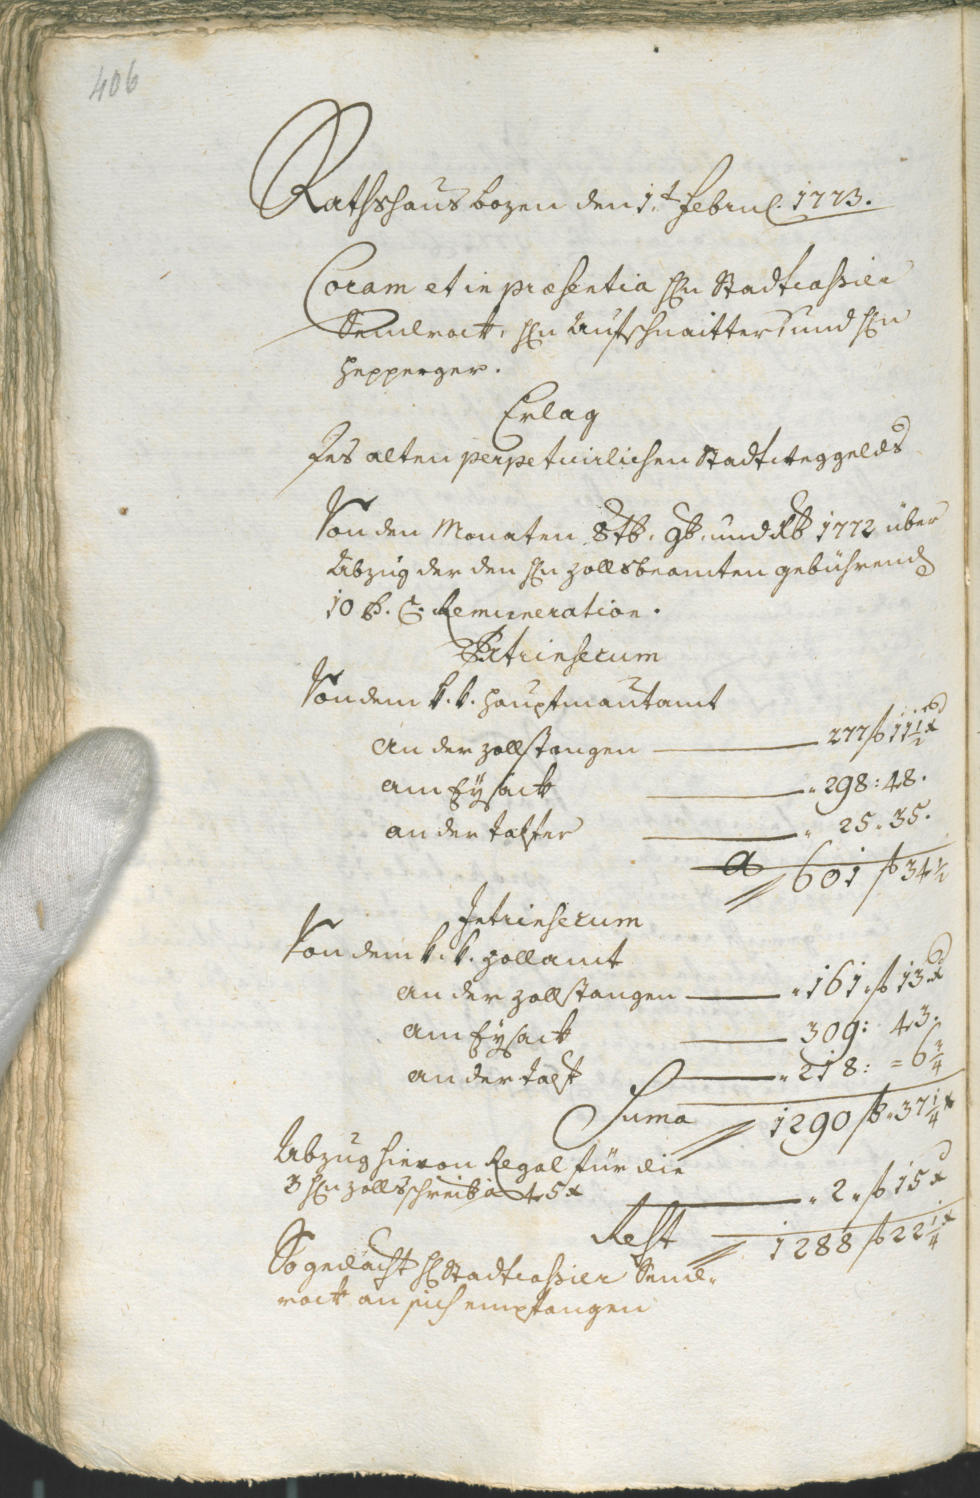 406
Rathshaus bozen den 1.t Febru. 1773.
Coram et in præsentia Hn Stadtcassier
Semlrock, Hn Aufschnaitter und Hn
Hepperger.
Erlag
des alten perpetuirlichen Stadtweggelds
Von den Monaten 8tb. 9b. und Xb 1772 über
Abzug der den Hn Zollsbeamten gebührend
10 P. C. Remuneration.
Extrinsecum
Von dem k. k. Hauptmautamt
an der Zollstangen 277 f 11 1/2 x
am Eÿsack 298: 48.
an der Talfer 25. 35.
601 f 34 1/2
Intrinsecum
Von dem k. k. Zollamt
an der Zollstangen 161. f 13 x
am Eÿsack 309: 43.
an der Talf 218: = 6 3/4
Suma 1290 f. 37 1/4 x
Abzug hievon Regal für die
3 Hn Zollsschreib à 45 x 2. f 15 x
Rest 1288 f 22 1/4 x
So gedacht H Stadtcassier Seml-
rock an sich empfangen